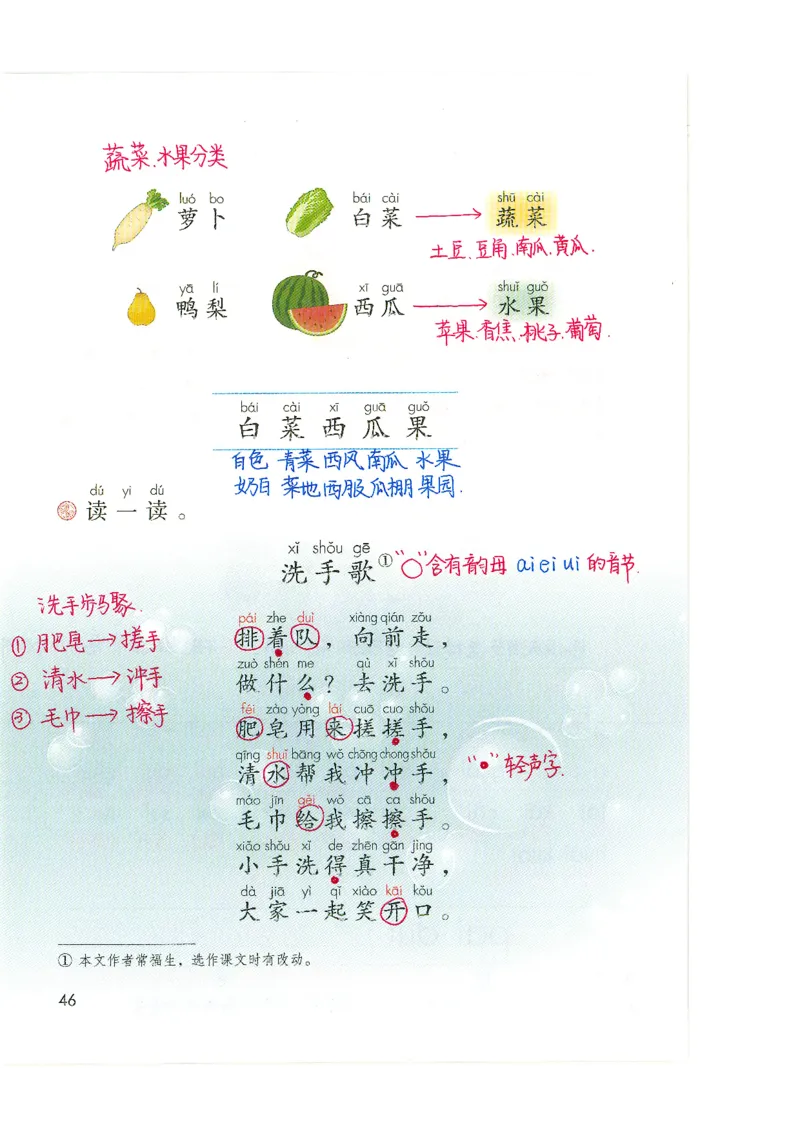 蔬菜.水果分类
luó bo bái cài shū cài
萝卜 白菜 蔬菜
土豆.豆角.南瓜.黄瓜.
yā lí xī guā shuǐ guǒ
鸭梨 西瓜 水果
苹果.香焦.桃子.葡萄.
bái cài xī guā guǒ
白菜西瓜果
白色 青菜 西风 南瓜 水果
奶白 菜地 西服 瓜棚 果园.
dú yi dú
读一读。
xǐ shǒu gē
洗手歌①
“○”含有韵母 ai ei ui 的音节.
洗手步骤.
① 肥皂→搓手
② 清水→冲手
③ 毛巾→擦手
pái zhe duì xiàng qián zǒu
排着队，向前走，
zuò shén me qù xǐ shǒu
做什么？去洗手。
féi zào yòng lái cuō cuo shǒu
肥皂用来搓搓手，
qīng shuǐ bāng wǒ chōng chong shǒu
清水帮我冲冲手，
“●”轻声字.
máo jīn gěi wǒ cā ca shǒu
毛巾给我擦擦手。
xiǎo shǒu xǐ de zhēn gān jìng
小手洗得真干净，
dà jiā yì qǐ xiào kāi kǒu
大家一起笑开口。
① 本文作者常福生，选作课文时有改动。
46